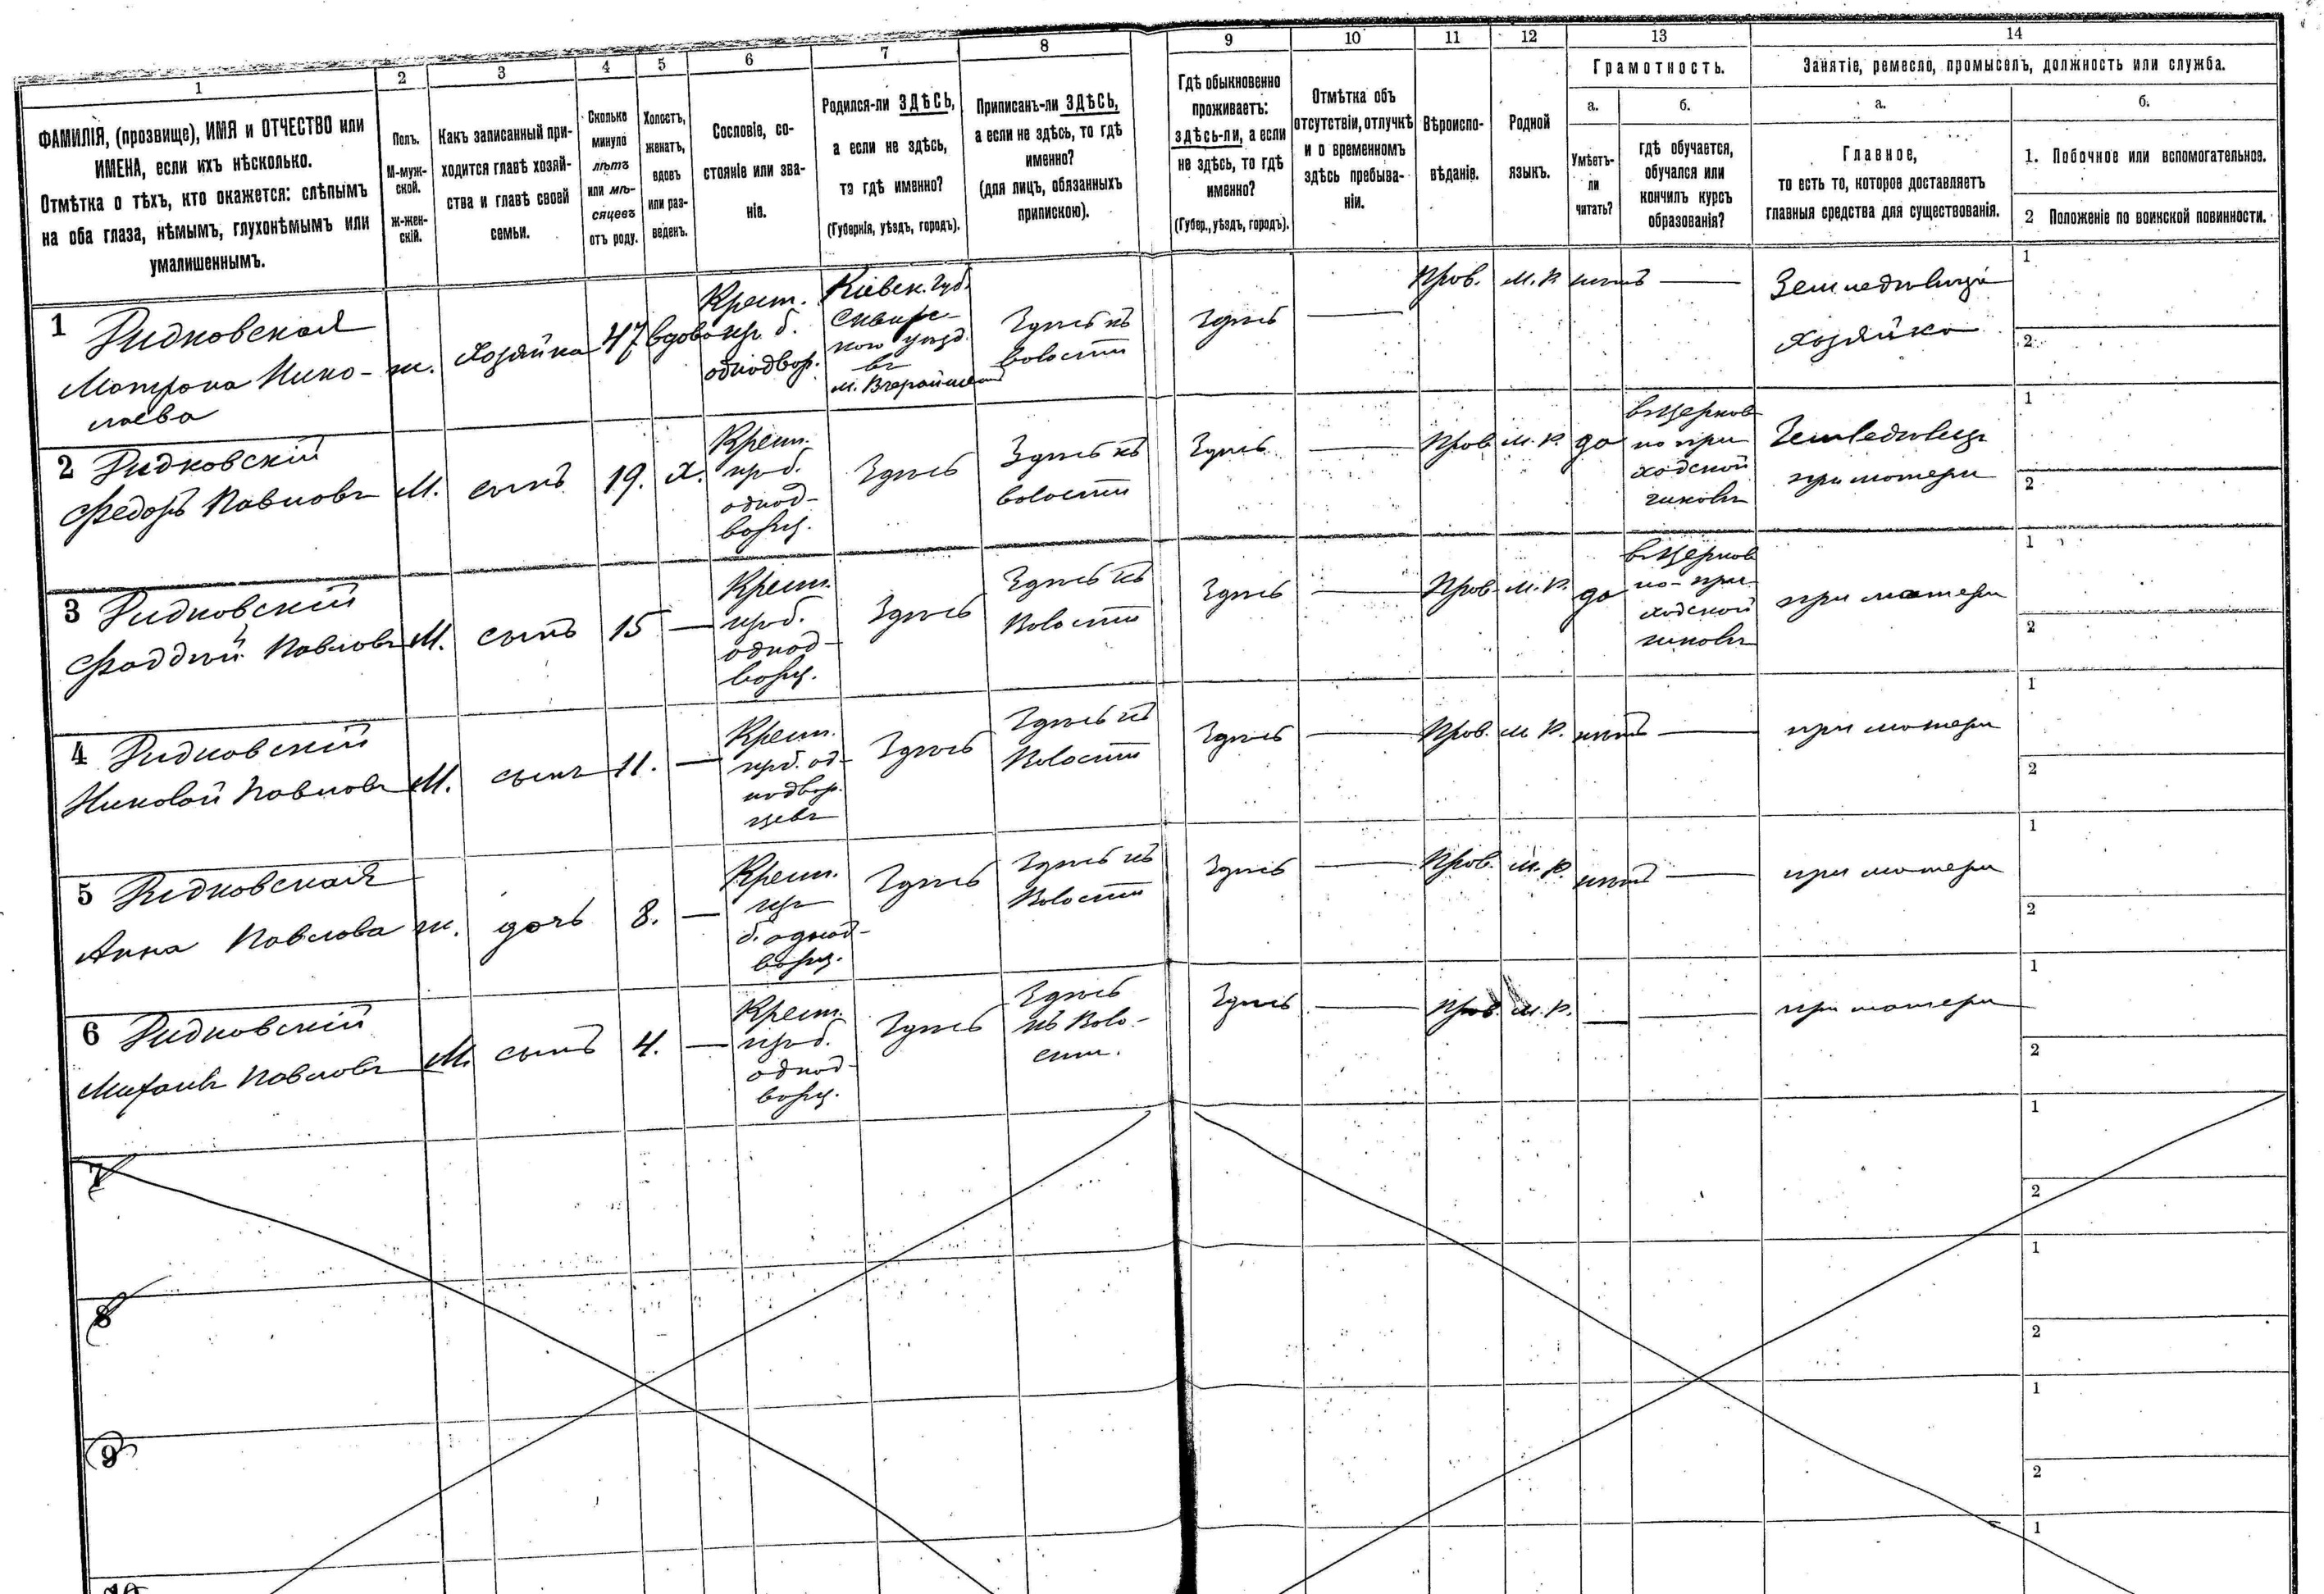 1
2
3
4
5
6
7
8
9
10
11
12
13
14
ФАМИЛІЯ, (прозвище), ИМЯ и ОТЧЕСТВО или
ИМЕНА, если ихъ нѣсколько.
Отмѣтка о тѣхъ, кто окажется: слѣпымъ
на оба глаза, нѣмымъ, глухонѣмымъ или
умалишеннымъ.
Полъ.
М-муж-
ской.
Ж-жен-
скій.
Какъ записанный при-
ходится главѣ хозяй-
ства и главѣ своей
семьи.
Сколько
минуло
лѣтъ
или мѣ-
сяцевъ
отъ роду.
Холостъ,
женатъ,
вдовъ
или раз-
веденъ.
Сословіе, со-
стояніе или зва-
ніе.
Родился-ли ЗДѢСЬ,
а если не здѣсь,
то гдѣ именно?
(Губернія, уѣздъ, городъ).
Приписанъ-ли ЗДѢСЬ,
а если не здѣсь, то гдѣ
именно?
(для лицъ, обязанныхъ
припискою).
Гдѣ обыкновенно
проживаетъ:
здѣсь-ли, а если
не здѣсь, то гдѣ
именно?
(Губер., уѣздъ, городъ).
Отмѣтка объ
отсутствіи, отлучкѣ
и о временномъ
здѣсь пребыва-
ніи.
Вѣроиспо-
вѣданіе.
Родной
языкъ.
Грамотность.
а.
Умѣетъ-
ли
читать?
б.
гдѣ обучается,
обучался или
кончилъ курсъ
образованія?
Занятіе, ремесло, промыселъ, должность или служба.
а.
Главное,
то есть то, которое доставляетъ
главныя средства для существованія.
б.
1. Побочное или вспомогательное.
2 Положеніе по воинской повинности.
1 Ридковская
Матрона Нико-
лаева
ж.
хозяйка
47
вдова
Крест.
из б.
однодвор.
Кіевск. губ.
Сквирс-
кого уезд.
въ
м. Вчерайшом
Здѣсь къ
волости
Здѣсь
—
Прав.
М. Р.
нѣтъ
—
Земледѣлица
хозяйка
1
2
2 Ридковскій
Федоръ Павловъ
М.
сынъ
19.
х.
Крест.
из б.
однод-
ворц.
Здѣсь
Здѣсь къ
волости
Здѣсь
—
Прав
М. Р.
да
въ церков
но при
ходской
школѣ
Земледѣлец
при матери
1
2
3 Ридковскій
Фаддѣй Павловъ
М.
сынъ
15
—
Крест.
из б.
однод-
ворц.
Здѣсь
Здѣсь къ
Волости
Здѣсь
—
Прав
М. Р.
да
въ церков
но-при
ходской
школѣ
при матери
1
2
4 Ридковскій
Николай Павловъ
М.
сынъ
11.
—
Крест.
из б. од-
нодвор.
цевъ
Здѣсь
Здѣсь къ
Волости
Здѣсь
—
Прав.
М. Р.
нѣтъ
—
при матери
1
2
5 Ридковская
Анна Павлова
ж.
дочь
8.
—
Крест.
из
б. однод-
ворц.
Здѣсь
Здѣсь къ
Волости
Здѣсь
—
Прав.
М. Р.
нѣтъ
—
при матери
1
2
6 Ридковскій
Михаилъ Павловъ
М.
сынъ
4.
—
Крест.
из б.
однод-
ворц.
Здѣсь
Здѣсь
къ Воло-
сти.
Здѣсь
—
Прав.
М. Р.
—
—
при матери
1
2
7
1
2
8
1
2
9
1
2
10
1